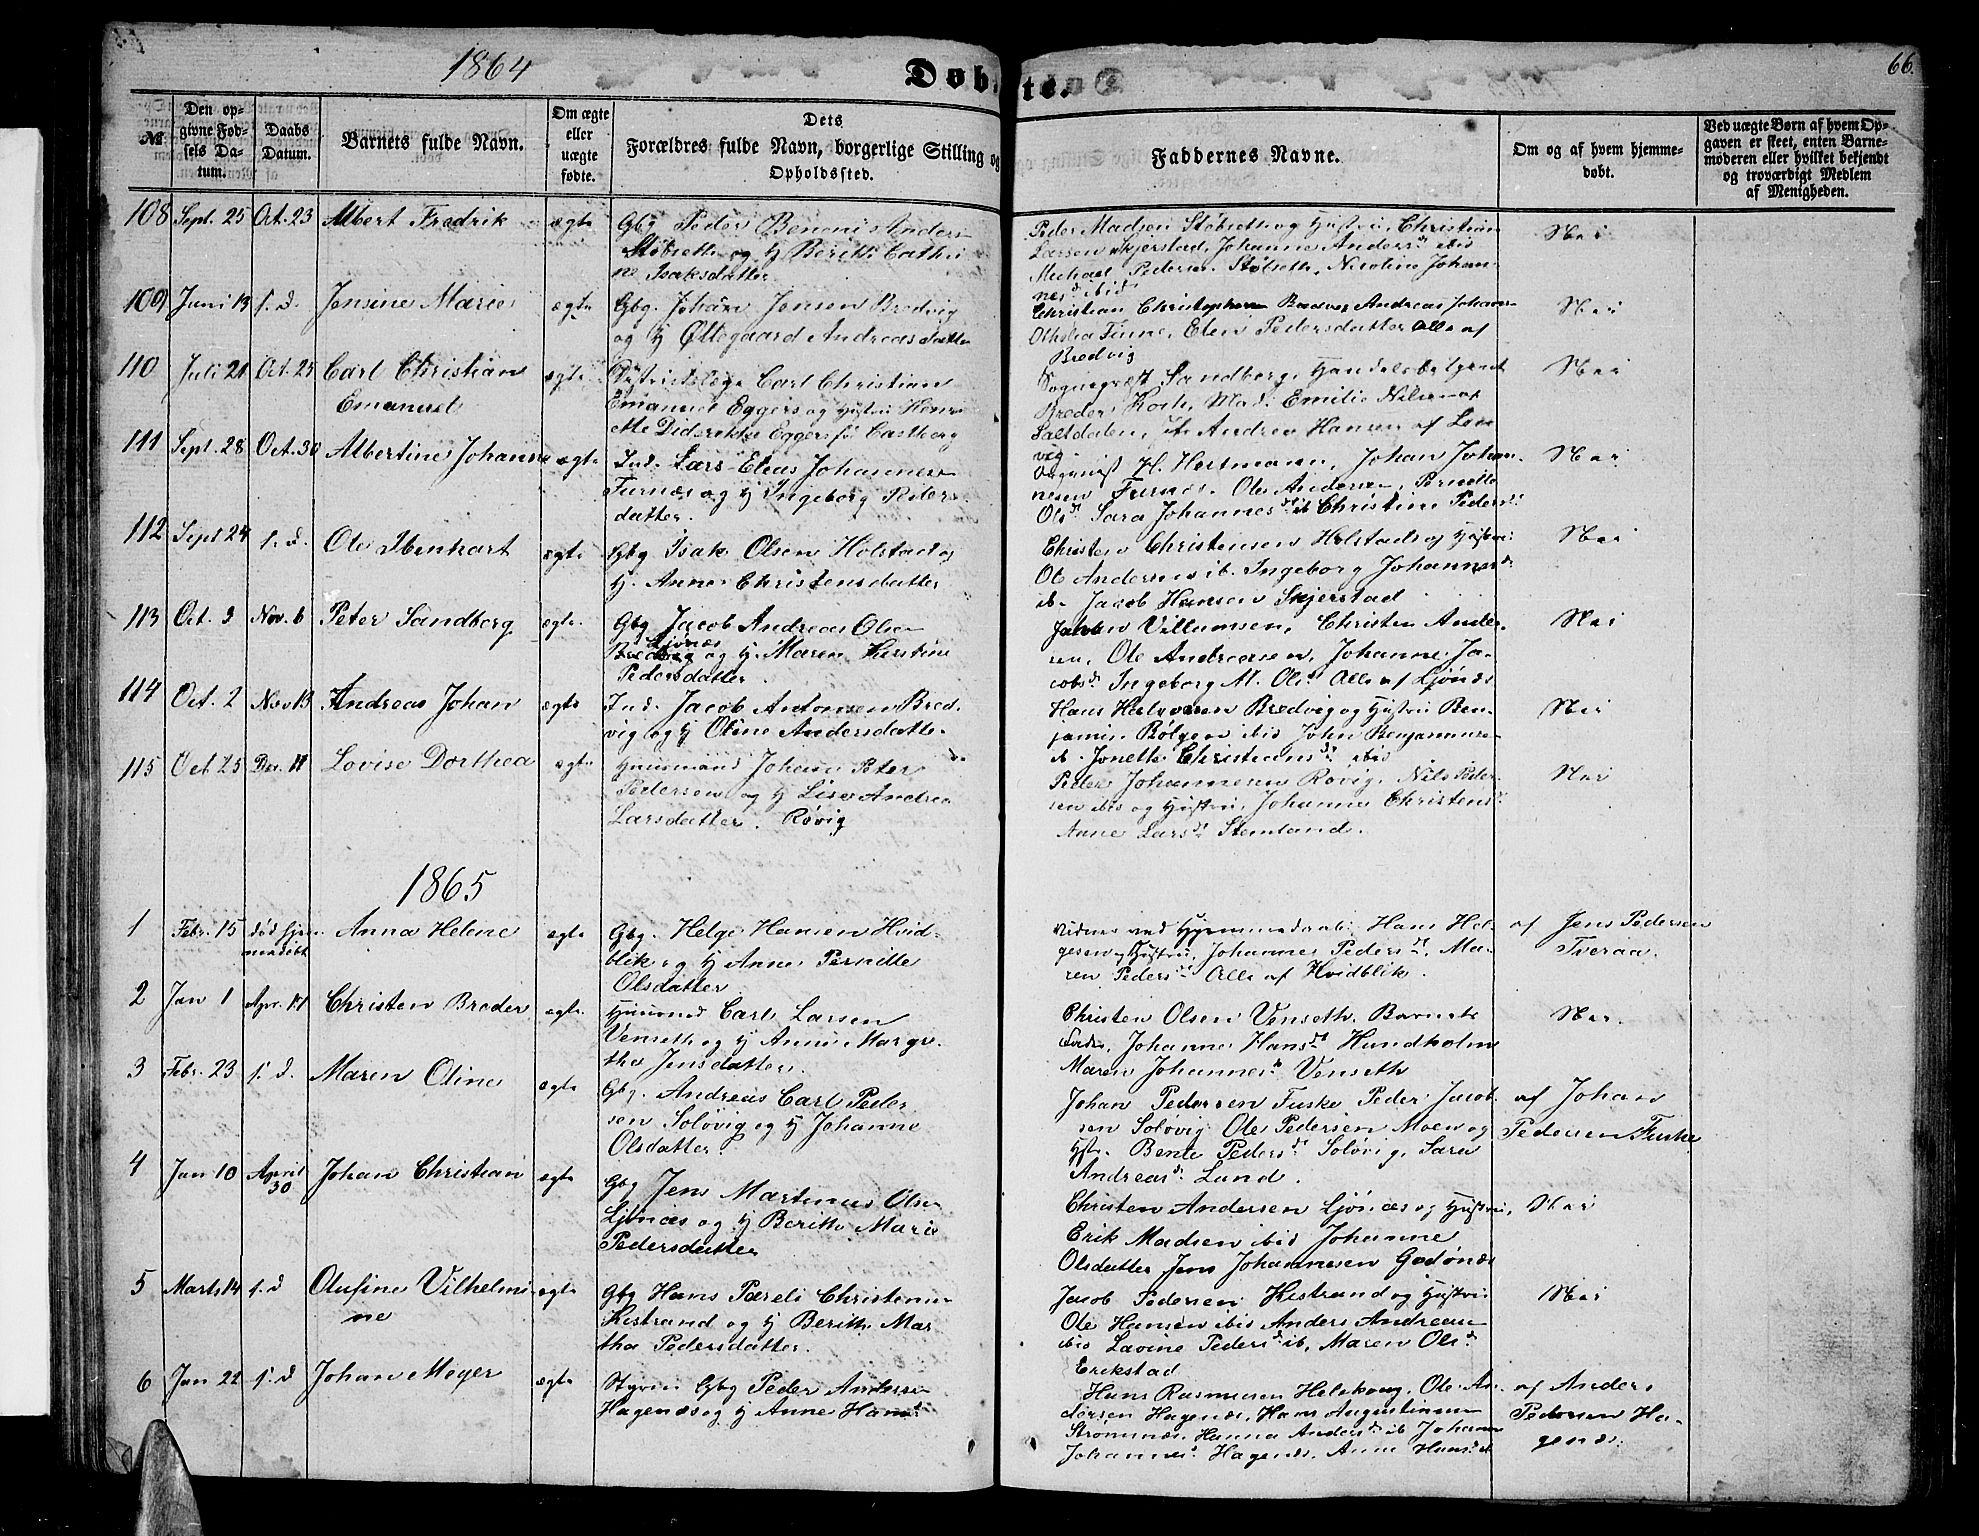 1864
Døbte.
66.
No
Den opgivne Fødsels Datum.
Daabs Datum.
Barnets fulde Navn.
Om ægte eller uægte fødte.
Dets Forældres fulde Navn, borgerlige Stilling og Opholdssted.
Faddernes Navne.
Om og af hvem hjemmedøbt.
Ved uægte Børn af hvem Opgaven er skeet, enten Barnemoderen eller hvilket bekjendt og troværdigt Medlem af Menigheden.
108 Sept. 25 Oct. 23 Albert Fredrik ægte Gbg Peder Benoni Anders
Støbseth og H Berith Cathri
ne Isaksdatter
Peder Madsen Støbseth og Hustru, Christian
Larsen Skjerstad, Johanne Andersd ibid
Michael Pedersen Støbseth, Nicoline Johan-
nesd ibid
Nei
109 Juni 19 s. d. Jensine Marie ægte Gbg. Johan Jensen Bredvig
og H Ottegaard Andreasdatter
Christian Christophersen Bredvig Andreas Johans
Finne, Elen Pedersdatter Alle af
Bredvig
Nei
110 Juli 21 Oct. 25 Carl Christian
Emanuel
ægte Districtslæge Carl Christian
Emanuel Eggers og Hustru Henri
ette Diderikke Eggers før Castberg
Sogneprest Sandberg, Handelsbetjent
Breder Koch, Mad. Emilie Nilsen af
Saltdalen, Andrea Hansen af
Nei
111 Sept. 28 Oct. 30 Albertine Johanne ægte Ind. Lars Elias Johannesen
Furnæs og H Ingeborg Peders
datter.
H. Hartmann, Johan Johan-
nesen Furnæs. Ole Andersen, Pernille
Olsd. Sara Johannesd ib Christine Pedersd.
Nei
112 Sept 24 s. d. Ole Ibenhart ægte Gbg Isak Olsen Holstad og
H. Anne Christensdatter
Christen Christensen Holstad og Hustru
Ole Andersen ib. Ingeborg Johannesd
ib. Jacob Hansen Skjerstad
Nei
113 Oct. 3 Nov. 6 Peter Sandberg ægte. Gbg Jacob Andreas Olsen
Ljønæs
Bredvig og H. Maren Kirstine
Pedersdatter.
Villumsen, Christen Ander-
sen, Ole Andreasen, Johanne Ja-
cobsd. Ingeborg M. Olsd. Alle af Ljønæs
Nei
114 Oct. 2 Nov 13 Andreas Johan ægte Ind. Jacob Antonsen Bred-
vig og H Oline Andersdatter
Hans Bredvig og Hustru Ben-
jamin Bølgen ibid John Benjaminsen
ib. Jonette Christiansd. ibid
Nei
115 Oct 25 Dec. 11 Lovise Dorthea ægte Huusmand Johan Peter
Pedersen og H Lise Andrea
Larsdatter. Røvig
Peder Johannesen Røvig, Nils Peder-
sen ibid og Hustru, Johanna Christensd.
Anne Larsd. Stemland.
Nei
1865
1 Febr. 15 død hjem-
medøbt
Anna Helene ægte Gbg. Helge Hansen Hvid-
blik og H Anne Pernille
Olsdatter
Vidner ved Hjemmedaab: Hans Hel-
gesen og Hustru, Johanne Pedersd., Ma-
ren Pedersd. Alle af Hvidblik.
af Jens Pedersen
Tveraa.
2 Jan 1 Apr. 17 Christen Breder ægte. Huusmd Carl Larsen
Venseth og H Anne Margre-
tha Jensdatter.
Christen Olsen Venseth. Barnets
Fader, Johanne Hansd. Hundholm
Maren Johannesd. Venseth
Nei.
3 Febr. 23 s. d. Maren Oline ægte Gbg. Andreas Carl Peder
sen Soløvig og H Johanne
Olsdatter.
Johan Pedersen Fuske Peder Jacob-
sen Soløvig Ole Pedersen Moen og
Hstr. Bente Pedersd. Soløvig, Sara
Andreasd. Lund.
af Johan
Pedersen Fuske
4 Jan 10 April
30
Johan Christian ægte Gbg Jens Martinus Olsen
Ljønæs og H Berith Marie
Pedersdatter
Christen Andersen Ljønæs og Hustru,
Erik Madsen ibid Johanne
Olsdatter Jens Johannesen Godønæs
Nei
5 Marts 14 s. d Olufine Vilhelmi
ne
ægte Gbg Hans Pareli Christensen
Kistrand og H Berith Mar
tha Pedersdatter.
Jacob Pedersen Kistrand og Hustru
Ole Hansen ibid Anders Andreasen
ibid Lavine Pedersd ib, Maren Olsd.
Erikstad
Nei
6 Jan 22 s. d Johan Meyer ægte Gbg Peder Andersen
Hagenæs og H Anne Hansd.
Hans Rasmussen, Ole An-
dersen Hagenæs, Hans Augustinussen
Strømnæs, Hanna Andersd ib Johanna
Johannesd. Hagenæs, Anne Hansd. ib
af Anders
Pedersen Ha-
genæs.